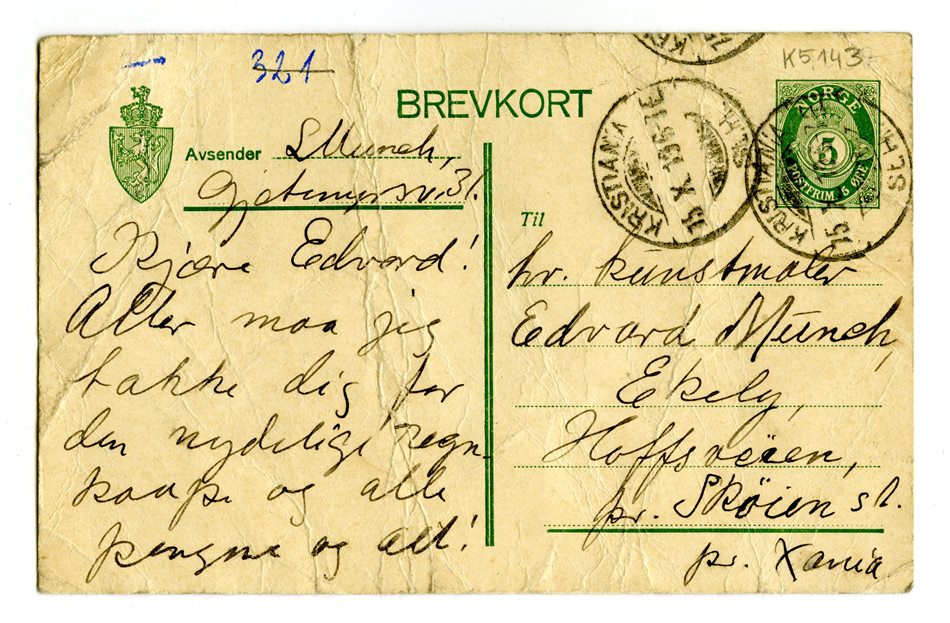 321
K5143
BREVKORT
NORGE
5
POSTFRIM. 5 ØRE
KRISTIANIA
15 X
KRISTIANIA
15 X
Avsender LMunch,
Gjetemyrsv. 31.
Kjære Edvard!
Atter maa jeg
takke dig for
den nydelige regn-
kaape og alle
pengene og alt!
Til
hr. kunstmaler
Edvard Munch,
Ekely,
Hoffsveien,
pr. Skøien st.
pr. Xania